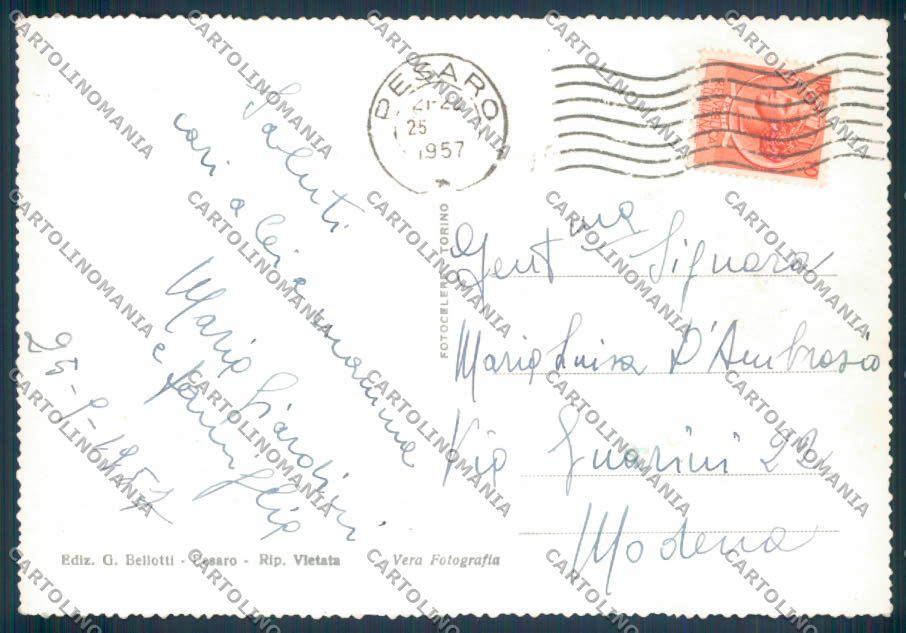 Saluti
cari a Lei e mamma
Maria
e famiglia
25-9-1957
PESARO
21-2
25
1957
FOTOCELERE TORINO
Gent.ma Signora
Maria Luisa D'Ambrosio
Via Guarini 22
Modena
Ediz. G. Bellotti - Pesaro - Rip. Vietata
Vera Fotografia
CARTOLINOMANIA